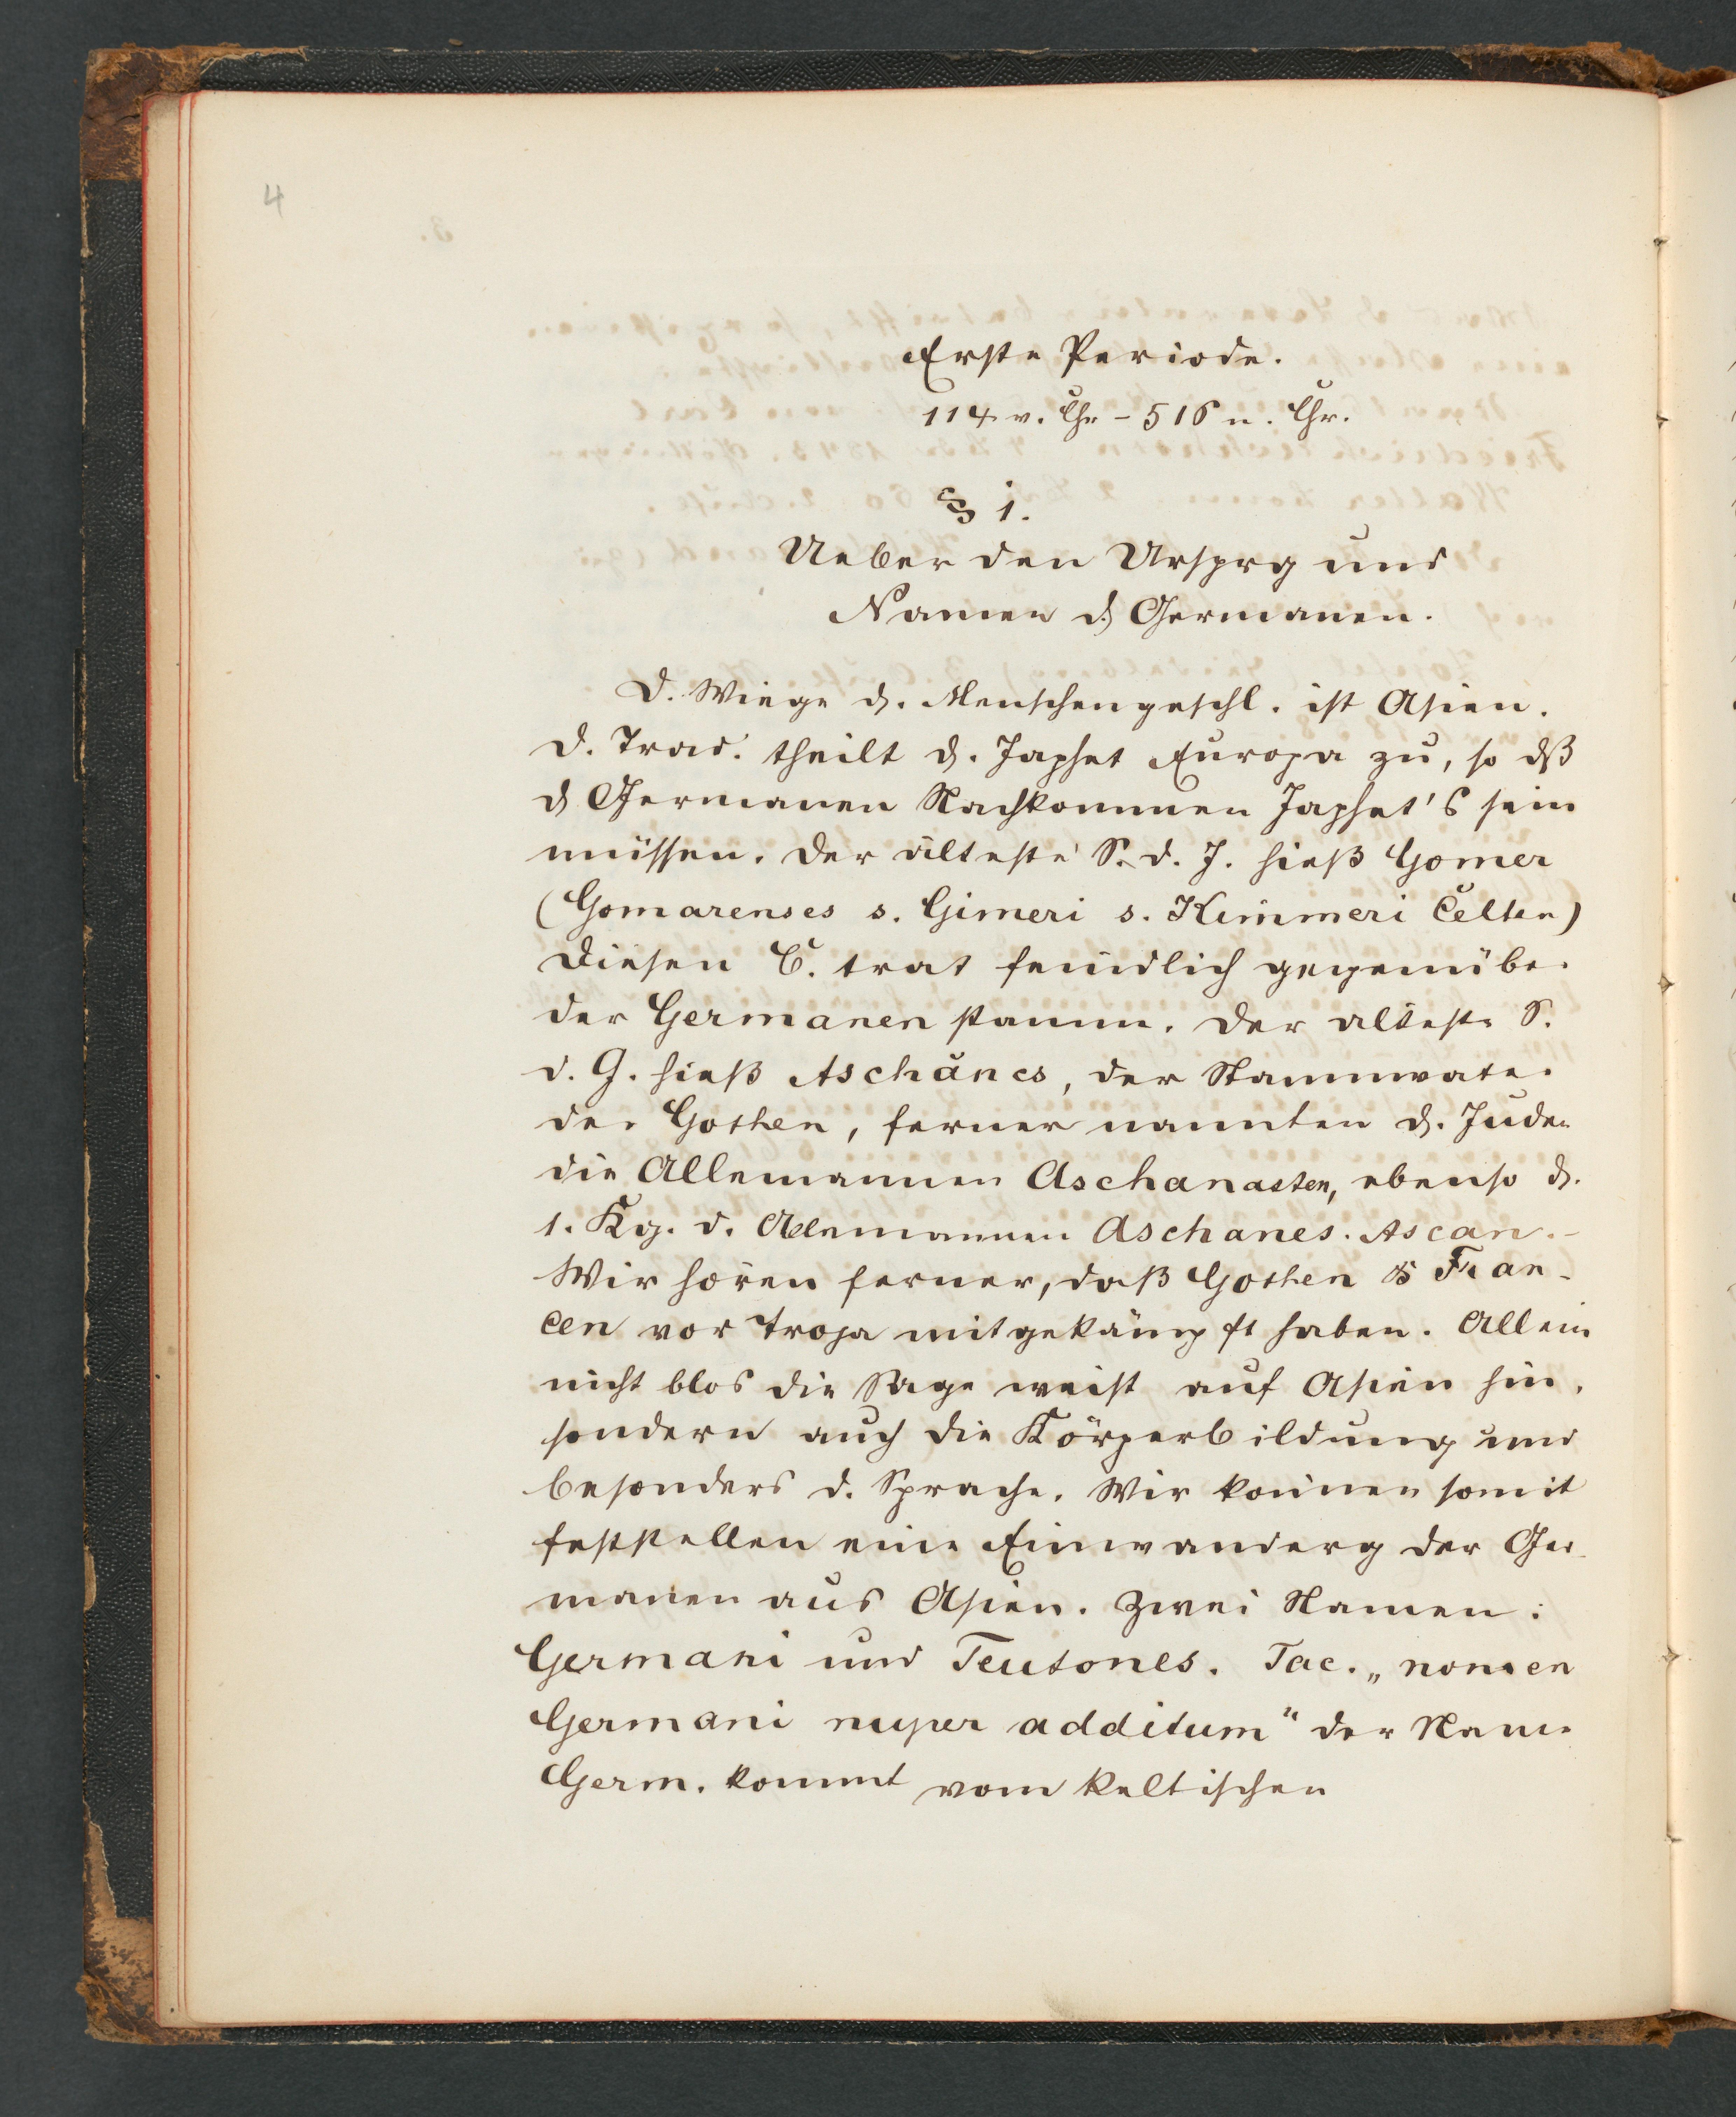 4
Erste Periode.
114 v. Chr - 516 n. Chr.
§ 1.
Ueber den Ursprg und
Namen d. Germanen.
D. Wiege d. Menschengeschl. ist Asien.
D. Trad. theilt d. Japhet Europa zu, so dß
d Germanen Nachkommen Japhet's sein
müssen. Der älteste S. d. J. hieß Gomer
(Gomarenses s. Gimeri s. Kimmeri Celten)
Diesen C. trat feindlich gegenüber
der Germanenstamm. Der älteste S.
d. G. hieß Aschanes, der Stammvater
der Gothen, ferner nannten d. Juden
die Allemannen Aschanasten, ebenso d.
1. Kg. d. Allemannen Aschanes. Ascan.-
Wir hören ferner, daß Gothen & Fran-
cen vor Troja mitgekämpft haben. Allein
nicht blos die Sage weist auf Asien hin,
sondern auch die Körperbildung und
besonders d. Sprache. Wir können somit
feststellen eine Einwanderg der Ger-
manen aus Asien. Zwei Namen:
Germani und Teutones. Tac. „nomen
Germani nuper additum“ der Name
Germ. kommt vom keltischen